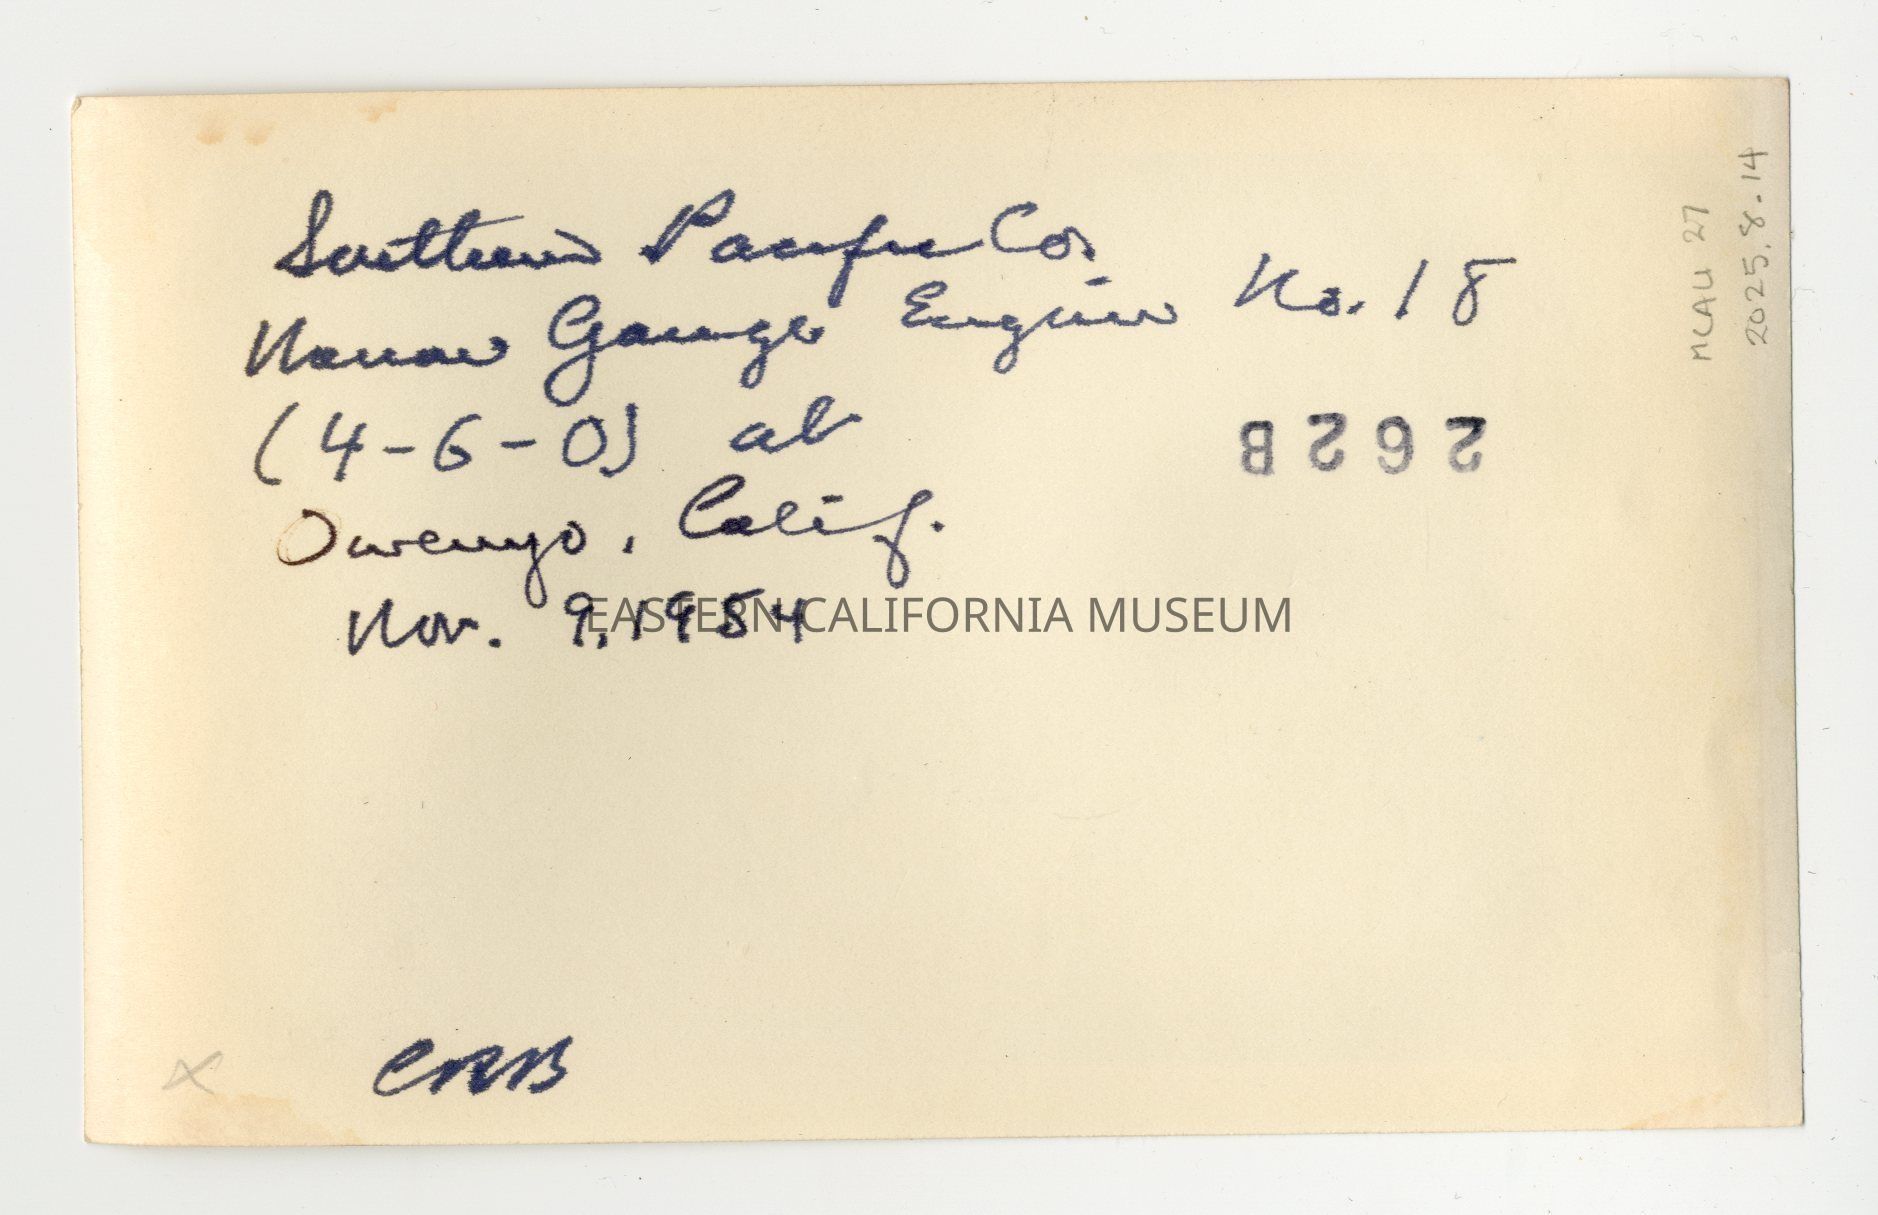 Southern Pacific Co.
Narrow Gauge Engine No. 18
(4-6-0) at
Owenyo, Calif.
Nov. 9, 1954
EASTERN CALIFORNIA MUSEUM
262B
MCAU 27
2025.8.14
X
CRB